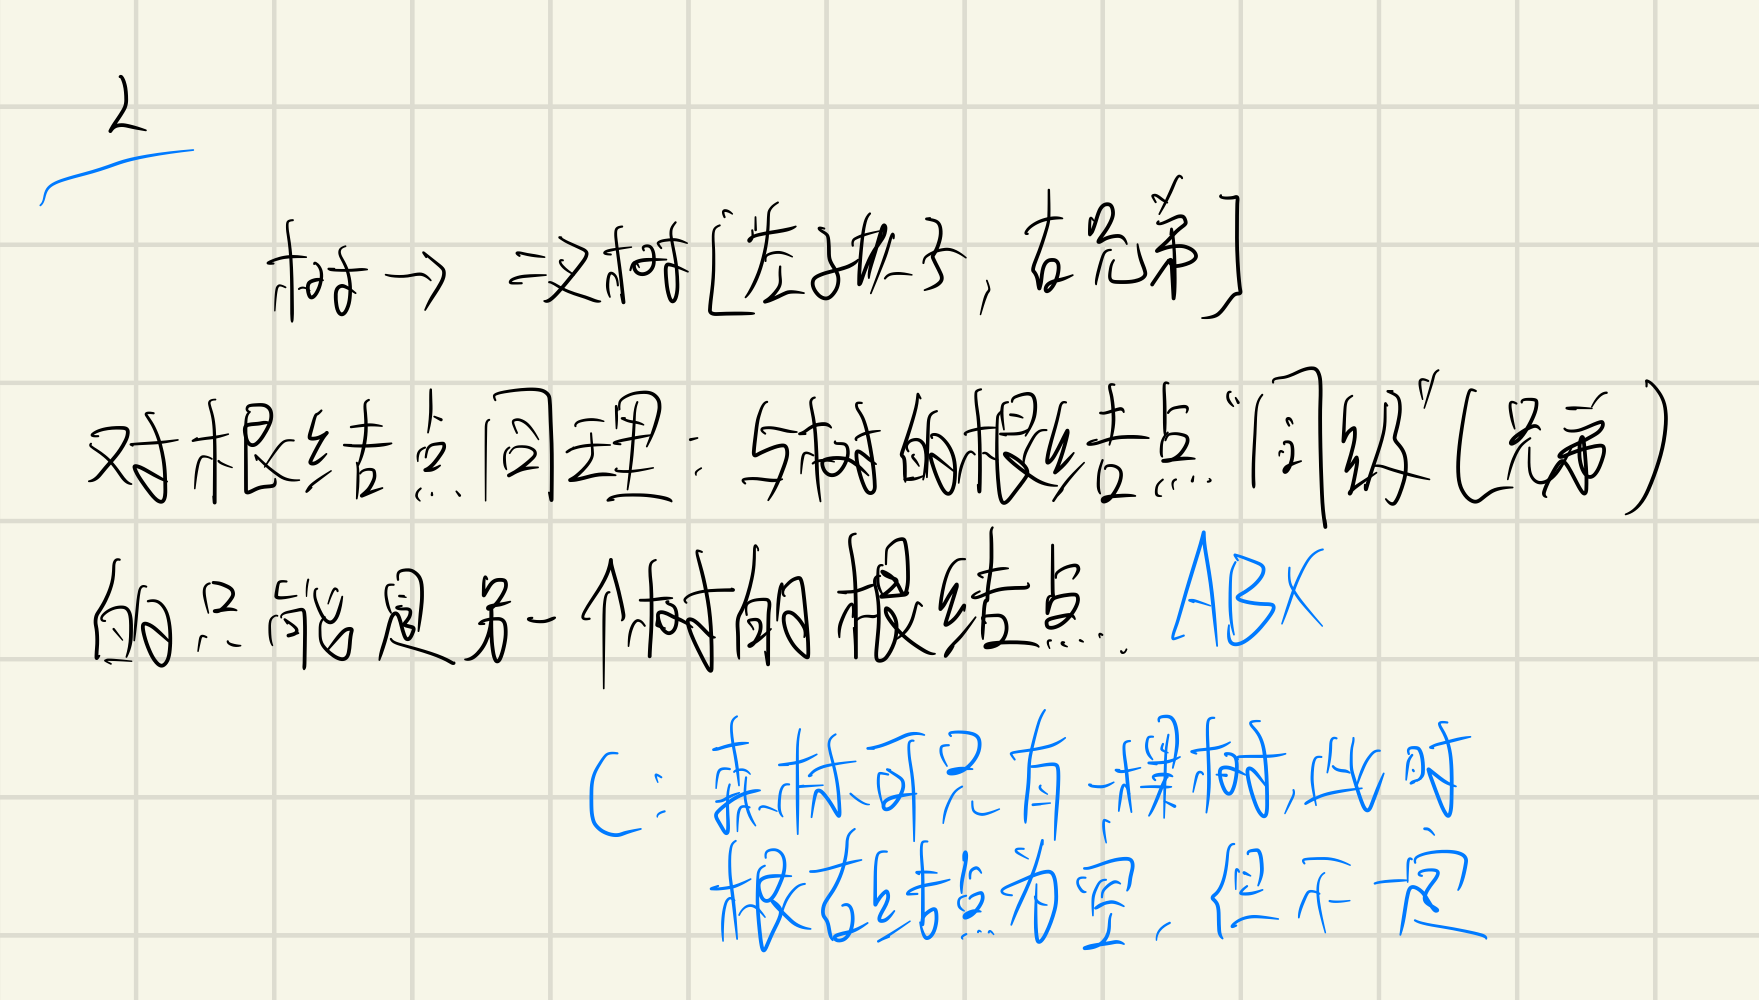 2
树→二叉树[左孩子,右兄弟]
对根结点同理:与树的根结点“同级”(兄弟)
的只能是另一个树的根结点. ABX
C:森林可只有一棵树,此时
根右结点为空,但不一定